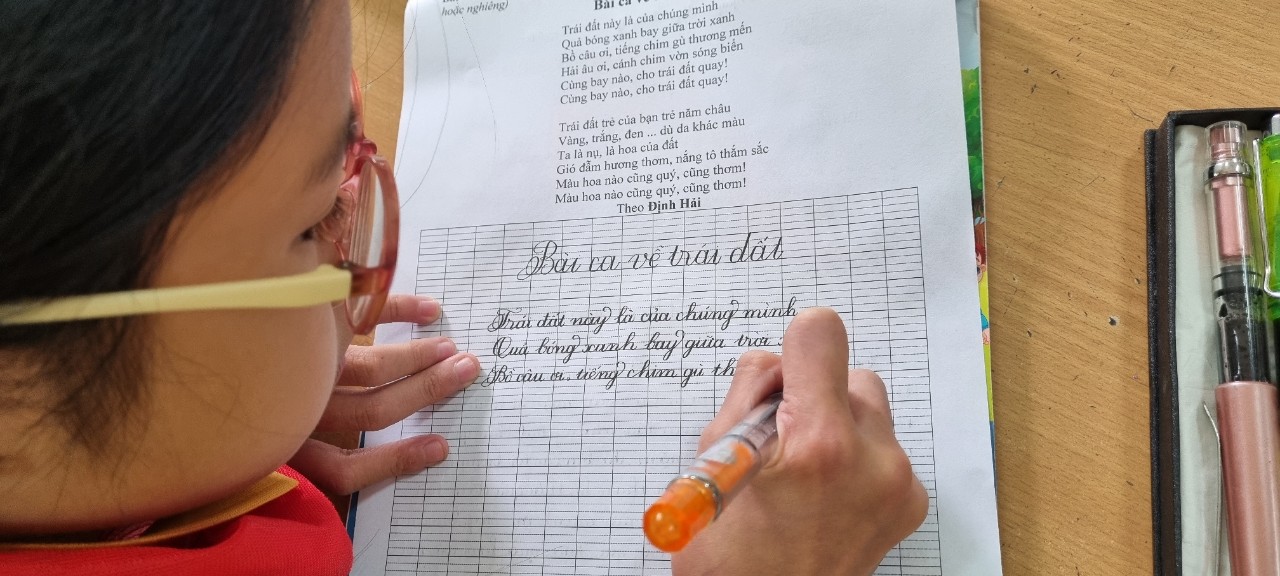 hoặc nghiêng)
Bài ca về
Trái đất này là của chúng mình
Quả bóng xanh bay giữa trời xanh
Bồ câu ơi, tiếng chim gù thương mến
Hải âu ơi, cánh chim vờn sóng biển
Cùng bay nào, cho trái đất quay!
Cùng bay nào, cho trái đất quay!
Trái đất trẻ của bạn trẻ năm châu
Vàng, trắng, đen ... dù da khác màu
Ta là nụ, là hoa của đất
Gió đẫm hương thơm, nắng tô thắm sắc
Màu hoa nào cũng quý, cũng thơm!
Màu hoa nào cũng quý, cũng thơm!
Theo Định Hải
Bài ca về trái đất
Trái đất này là của chúng mình
Quả bóng xanh bay giữa trời
Bồ câu ơi, tiếng chim gù th